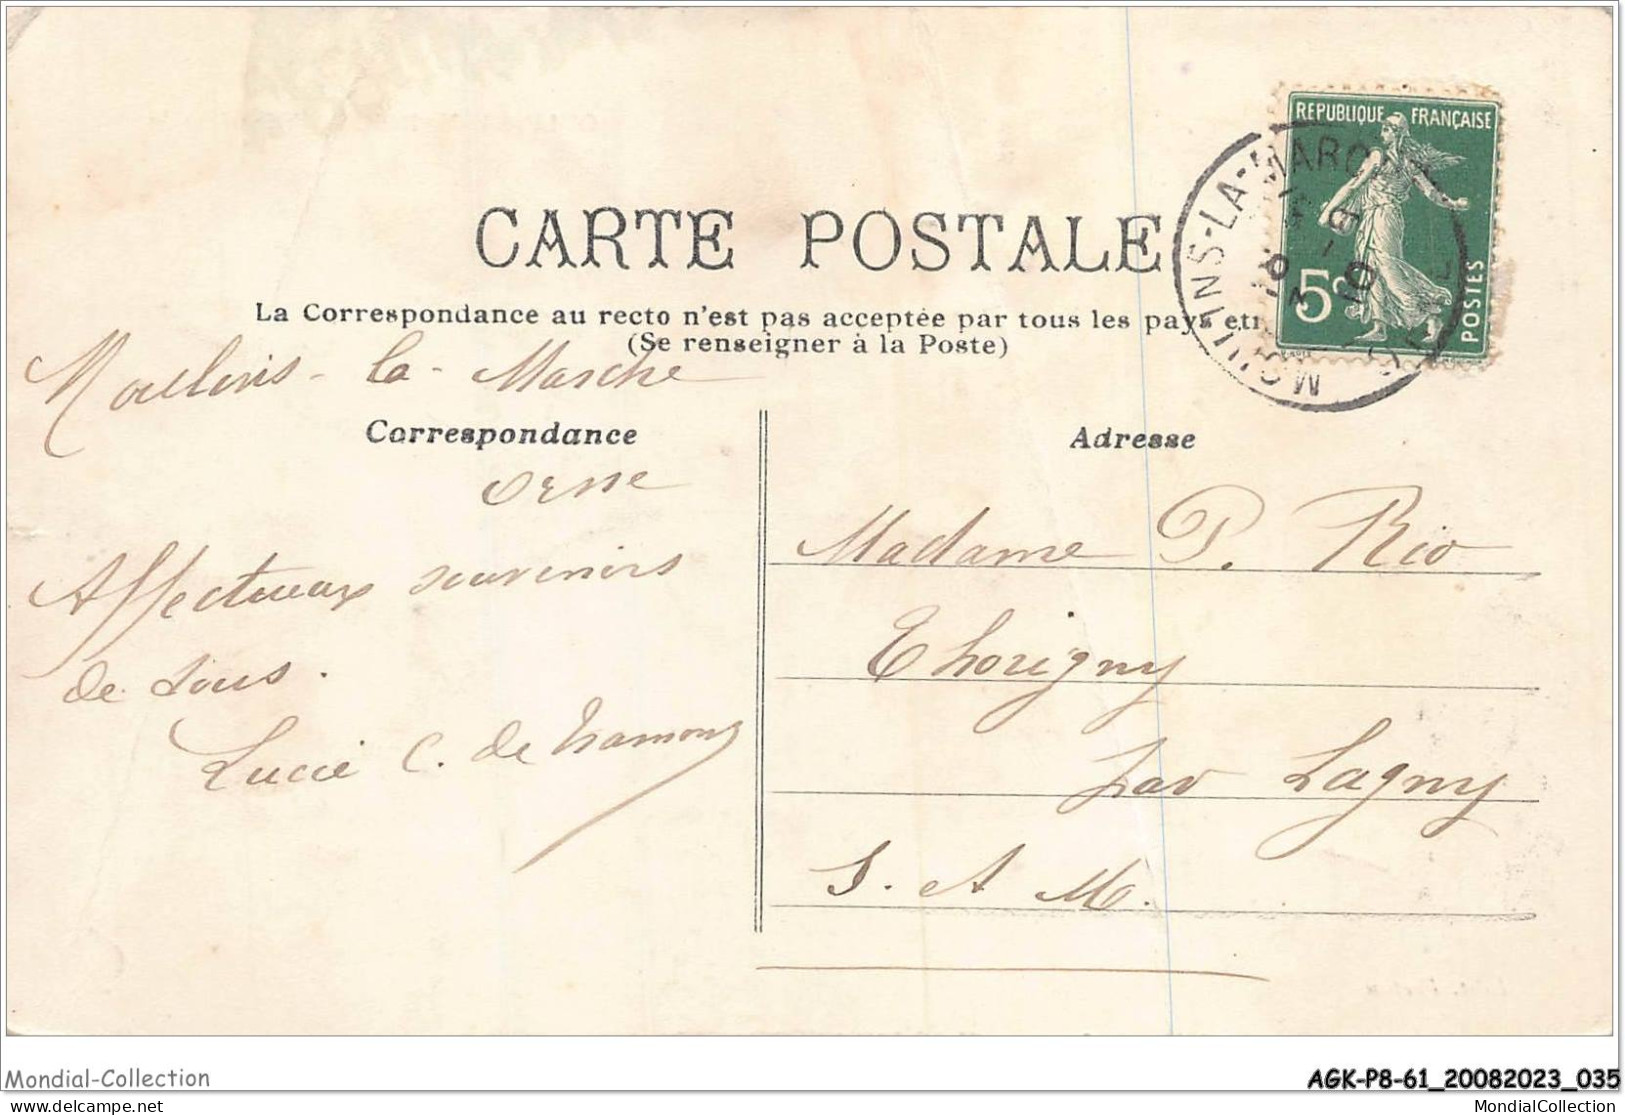 CARTE POSTALE
La Correspondance au recto n'est pas acceptée par tous les pays etr
(Se renseigner à la Poste)
REPUBLIQUE FRANÇAISE
5c
POSTES
MOULINS-LA-MARCHE
Moulins-la-Marche
Correspondance
Orne
Affectueux souvenirs
de tous.
Lucie C. de
Adresse
Madame P. Rio
Thorigny
par Lagny
S. et M.
Mondial-Collection
AGK-P8-61_20082023_035
MondialCollection
MondialCollection